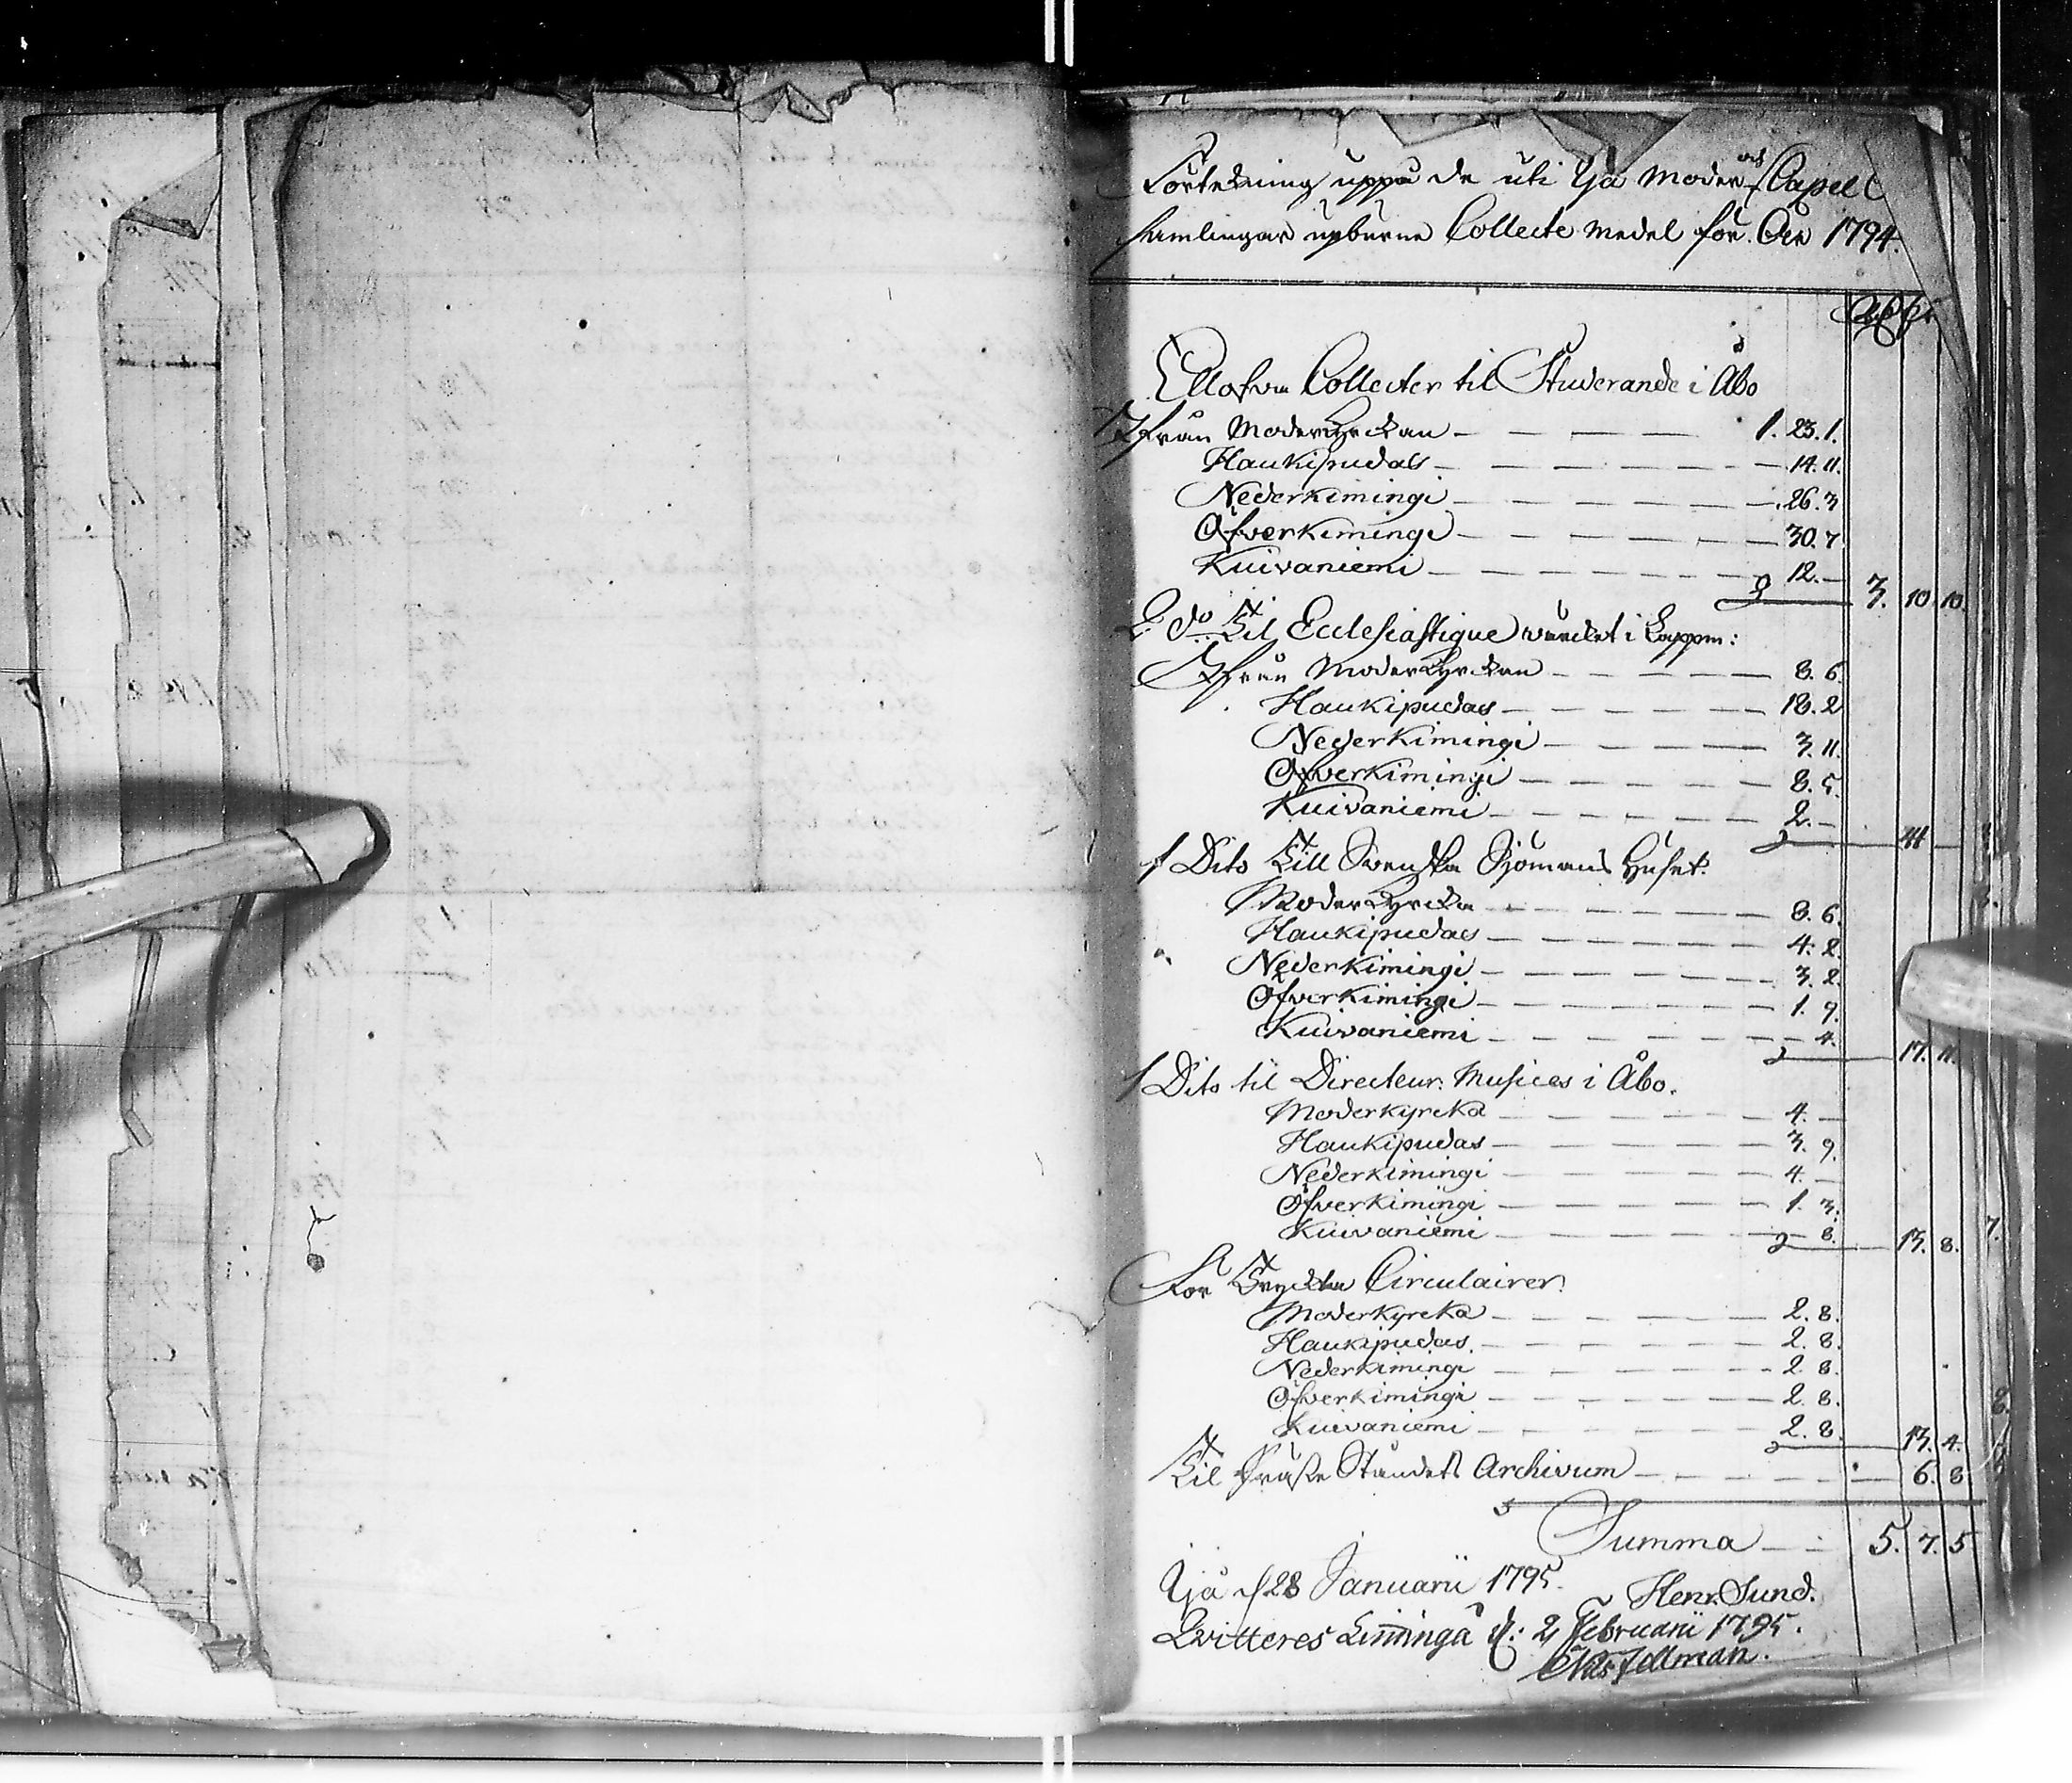 Förtekning uppå de uti Ijå Moder och Capell
samlingar upburne Collecte medel för Åhr 1794.
Ellofva Collecter til Studerande i Åbo
Ifrån Moderkyrckan — 1. 23. 1.
Haukipudas — 14. 11.
Nederkimingi — 26. 3
Öfverkimingi — 30. 7
Kuivaniemi — 12. — 3. 10. 10.
2 do Til Ecclesiastique wärcket i Lappm:
Ifrån Moderkyrckan — 8. 6.
Haukipudas — 18. 2
Nederkimingi — 3. 11.
Öfverkimingi — 8. 5.
Kuivaniemi — 2. — 41 —
1 Dito Till Svenska Sjömans Huset.
Moderkyrcka — 8. 6.
Haukipudas — 4. 2.
Nederkimingi — 3. 2.
Öfverkimingi — 1. 9.
Kuivaniemi — 4. 17. 11.
1 Dito til Directeur Musices i Åbo.
Moderkyrcka — 4. —
Haukipudas — 3. 9.
Nederkimingi — 4. —
Öfverkimingi — 1. 3.
Kuivaniemi — 8. 13. 8.
För Tryckta Circulairer.
Moderkyrcka — 2. 8.
Haukipudas — 2. 8.
Nederkimingi — 2. 8.
Öfverkimingi — 2. 8.
Kuivaniemi — 2. 8. 13. 4.
Til Präste Ståndets Archivum — 6. 8
Summa — 5. 7. 5
Ijå d 28 Januarii 1795.
Henr. Sund.
Qvitteres Limingå d: 2 Februarii 1795.
Nils Fellman.